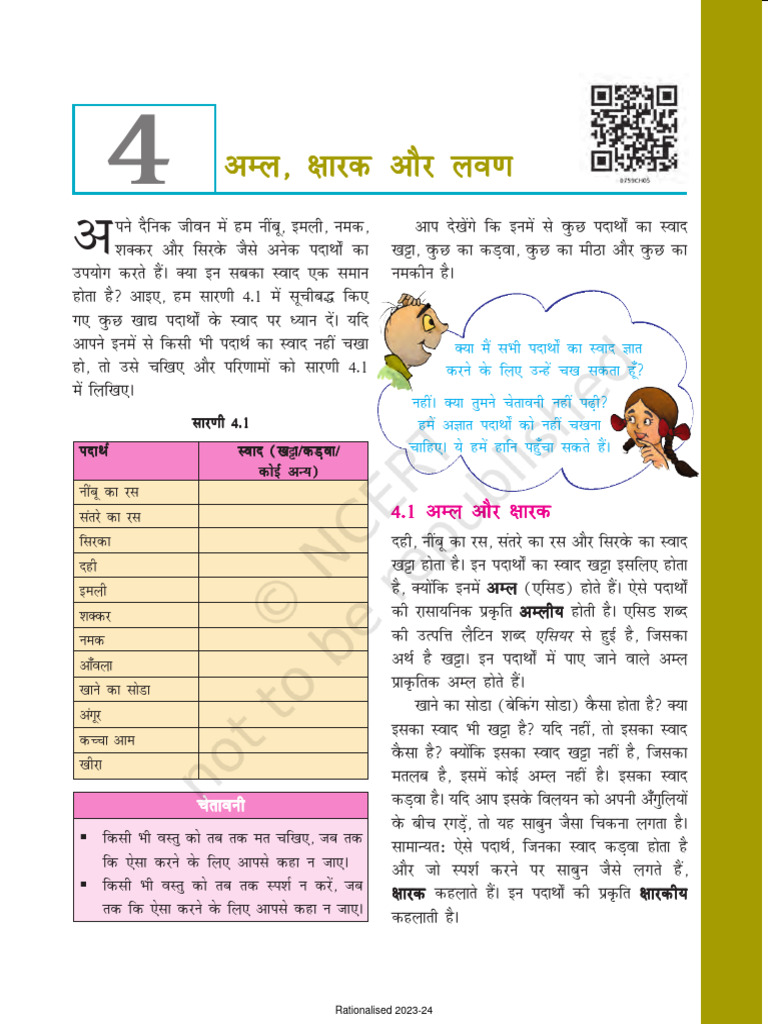 4
अम्ल, क्षारक और लवण
0759CH05
अपने दैनिक जीवन में हम नींबू, इमली, नमक,
शक्कर और सिरके जैसे अनेक पदार्थों का
उपयोग करते हैं। क्या इन सबका स्वाद एक समान
होता है? आइए, हम सारणी 4.1 में सूचीबद्ध किए
गए कुछ खाद्य पदार्थों के स्वाद पर ध्यान दें। यदि
आपने इनमें से किसी भी पदार्थ का स्वाद नहीं चखा
हो, तो उसे चखिए और परिणामों को सारणी 4.1
में लिखिए।
सारणी 4.1
पदार्थ स्वाद (खट्टा/कड़वा/
कोई अन्य)
नींबू का रस
संतरे का रस
सिरका
दही
इमली
शक्कर
नमक
आँवला
खाने का सोडा
अंगूर
कच्चा आम
खीरा
चेतावनी
▪ किसी भी वस्तु को तब तक मत चखिए, जब तक
कि ऐसा करने के लिए आपसे कहा न जाए।
▪ किसी भी वस्तु को तब तक स्पर्श न करें, जब
तक कि ऐसा करने के लिए आपसे कहा न जाए।
आप देखेंगे कि इनमें से कुछ पदार्थों का स्वाद
खट्टा, कुछ का कड़वा, कुछ का मीठा और कुछ का
नमकीन है।
क्या मैं सभी पदार्थों का स्वाद ज्ञात
करने के लिए उन्हें चख सकता हूँ?
नहीं। क्या तुमने चेतावनी नहीं पढ़ी?
हमें अज्ञात पदार्थों को नहीं चखना
चाहिए। ये हमें हानि पहुँचा सकते हैं।
4.1 अम्ल और क्षारक
दही, नींबू का रस, संतरे का रस और सिरके का स्वाद
खट्टा होता है। इन पदार्थों का स्वाद खट्टा इसलिए होता
है, क्योंकि इनमें अम्ल (एसिड) होते हैं। ऐसे पदार्थों
की रासायनिक प्रकृति अम्लीय होती है। एसिड शब्द
की उत्पत्ति लैटिन शब्द एसियर से हुई है, जिसका
अर्थ है खट्टा। इन पदार्थों में पाए जाने वाले अम्ल
प्राकृतिक अम्ल होते हैं।
खाने का सोडा (बेकिंग सोडा) कैसा होता है? क्या
इसका स्वाद भी खट्टा है? यदि नहीं, तो इसका स्वाद
कैसा है? क्योंकि इसका स्वाद खट्टा नहीं है, जिसका
मतलब है, इसमें कोई अम्ल नहीं है। इसका स्वाद
कड़वा है। यदि आप इसके विलयन को अपनी अँगुलियों
के बीच रगड़ें, तो यह साबुन जैसा चिकना लगता है।
सामान्यत: ऐसे पदार्थ, जिनका स्वाद कड़वा होता है
और जो स्पर्श करने पर साबुन जैसे लगते हैं,
क्षारक कहलाते हैं। इन पदार्थों की प्रकृति क्षारकीय
कहलाती है।
© NCERT
not to be republished
Rationalised 2023-24